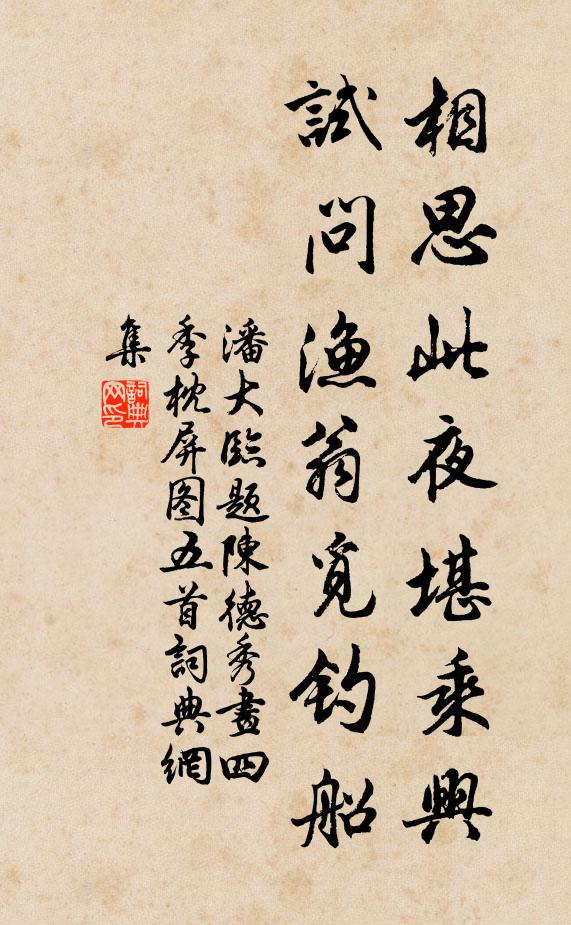 相思此夜堪乘興
試問漁翁覓釣船
潘大臨題陳德秀畫四
季枕屏图五首詞典網
集
詞典
网印